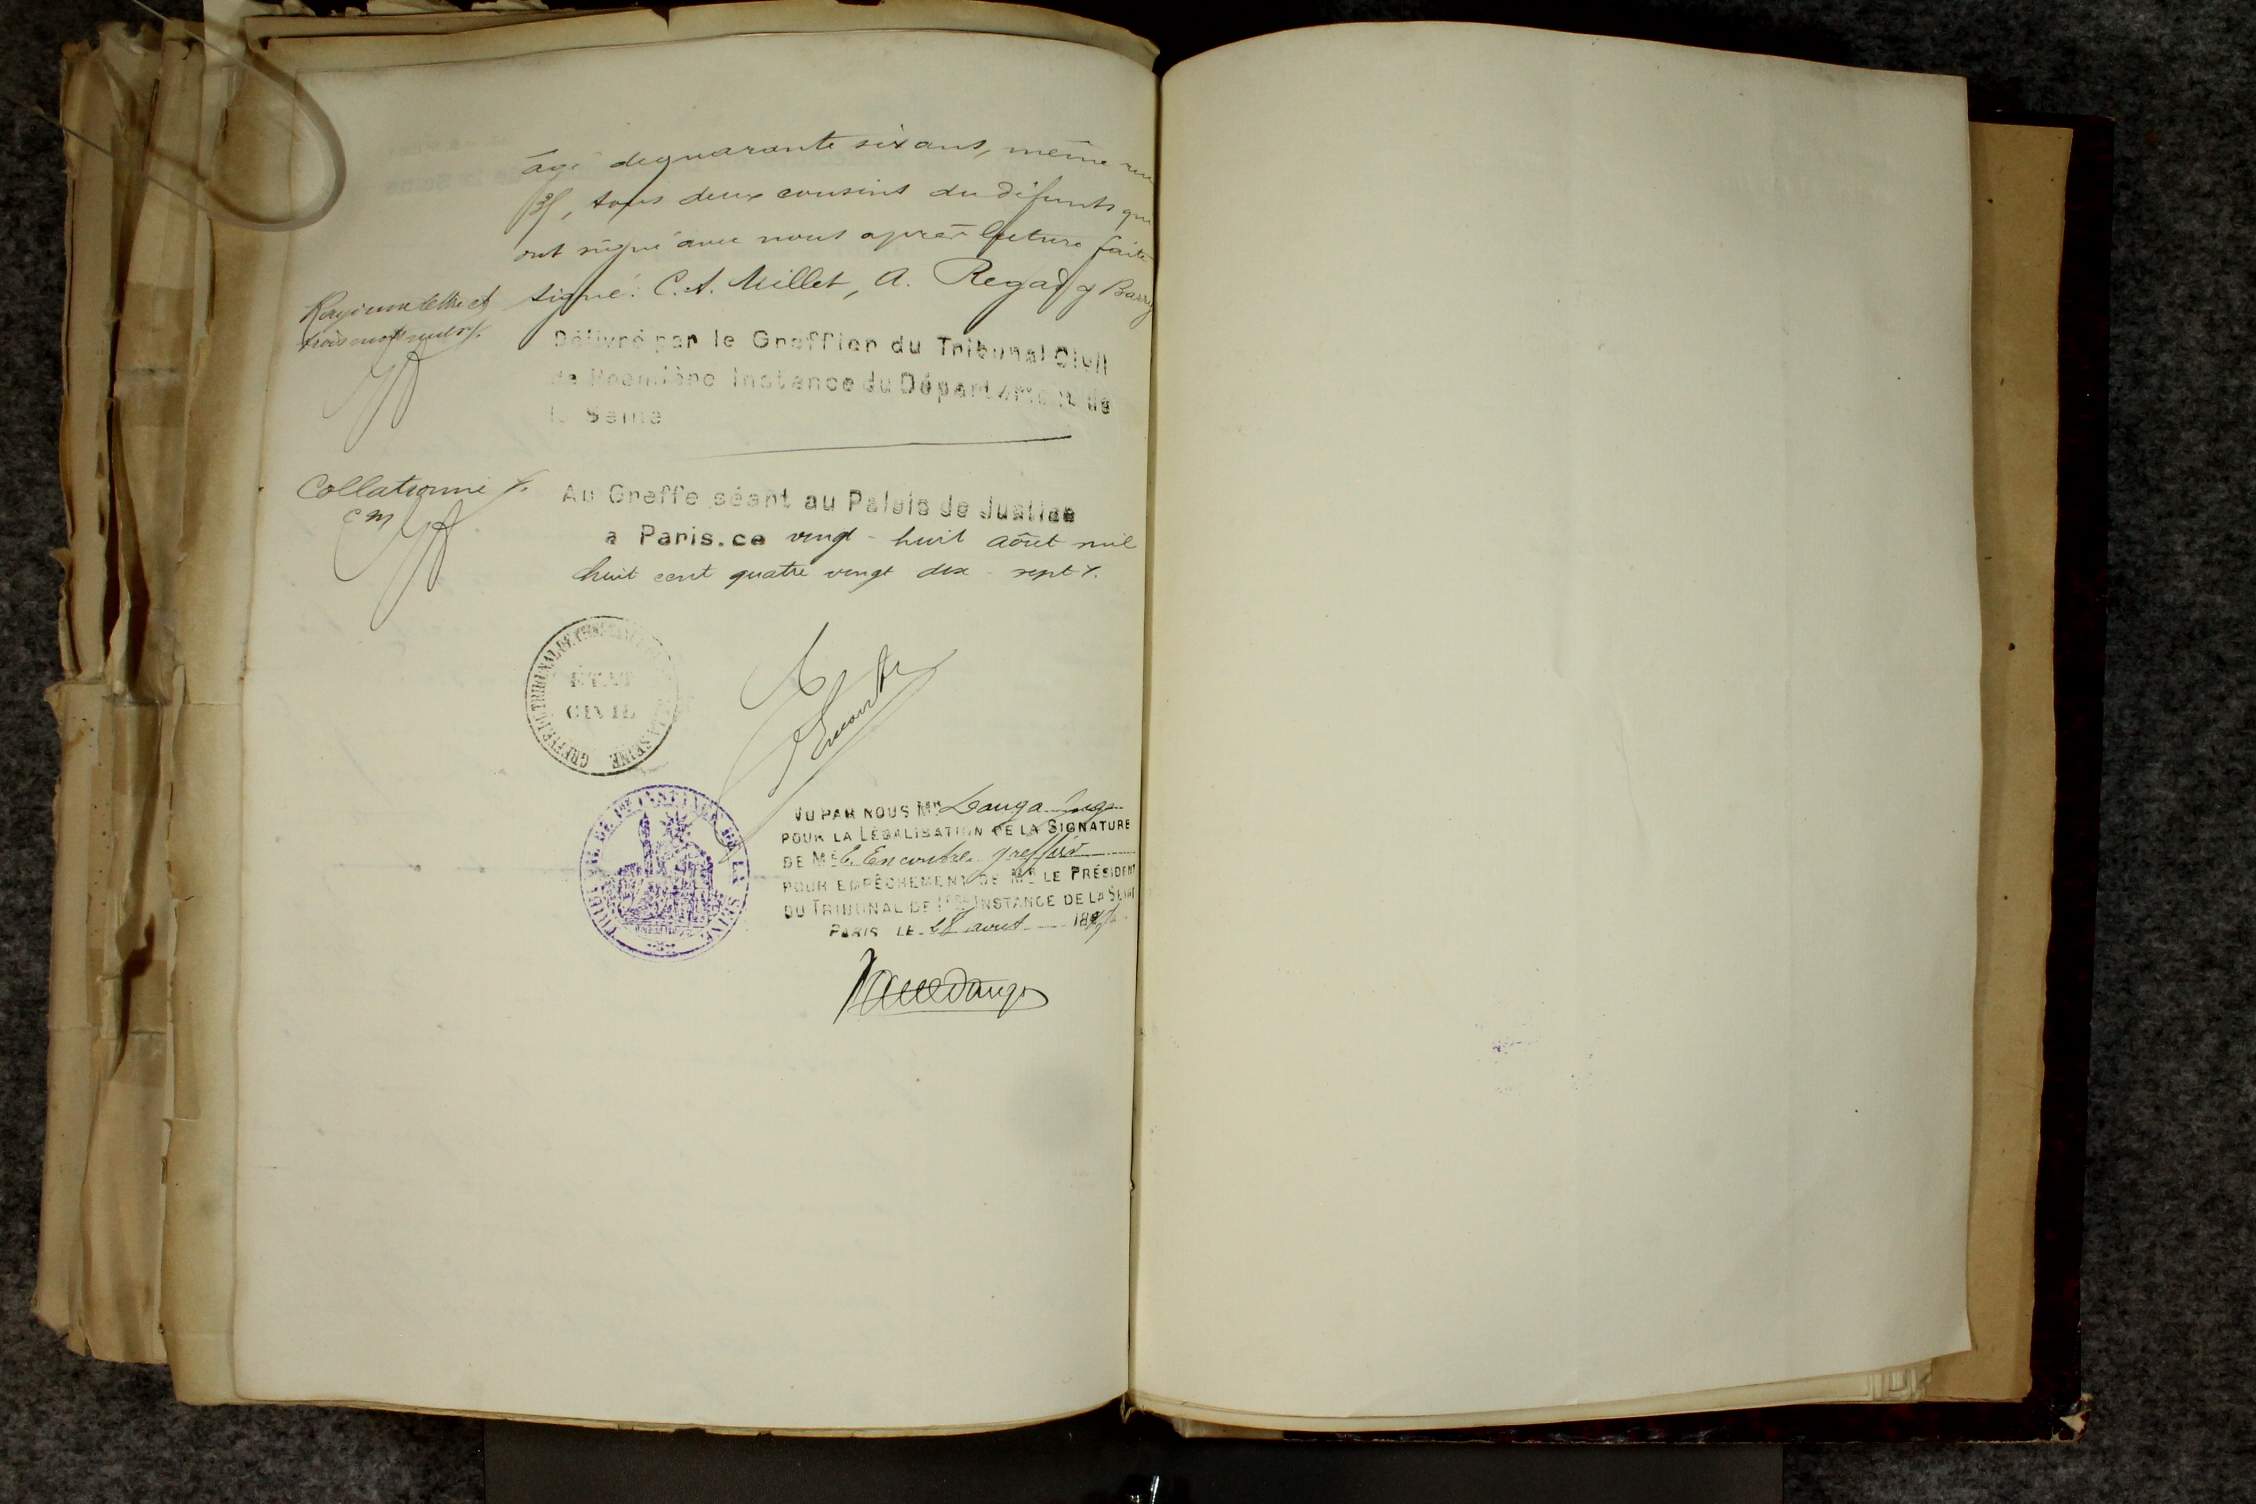 âgé de quarante six ans, même rue
, tous deux cousins du défunt qui
ont signé avec nous après lecture faite
signé: C.A. Millet, A. Regad Barry
Rayé une lettre et
trois mots nuls
Délivré par le Greffier du Tribunal Civil
de Première Instance du Département de
la Seine
Collationné
cm
Au Greffe séant au Palais de Justice
a Paris. ce vingt-huit août mil
huit cent quatre vingt dix-sept
GREFFE DU TRIBUNAL DE PREMIÈRE LA SEINE
ETAT
CIVIL
E Encontre
TRIBUNAL DE 1RE INSTANCE DE LA SEINE
VU PAR NOUS MR Dauga Juge
POUR LA LÉGALISATION DE LA SIGNATURE
DE ME Encontre greffier
POUR EMPÊCHEMENT DE MR LE PRÉSIDENT
DU TRIBUNAL DE 1RE INSTANCE DE LA SEINE
PARIS LE 28 aout 1897